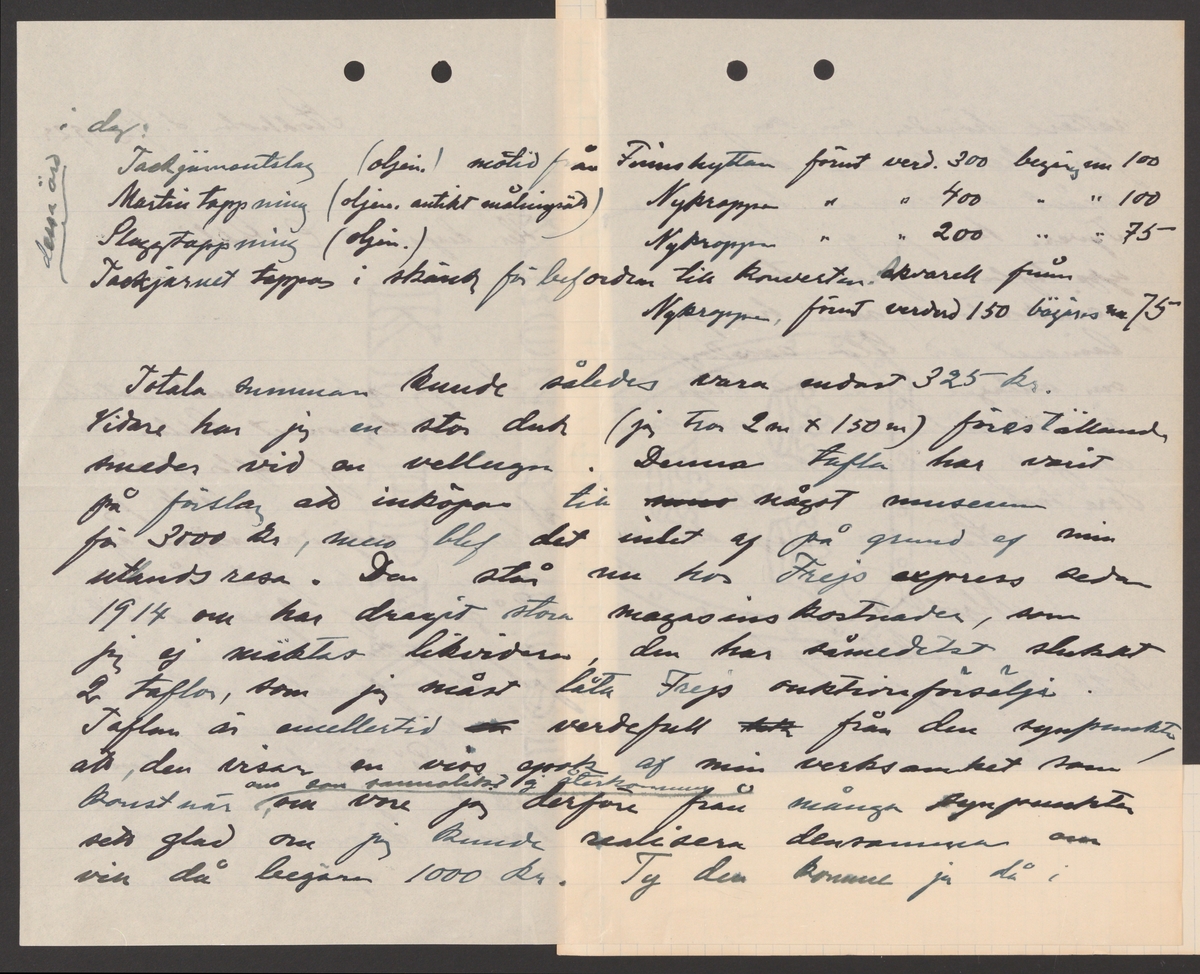 i dag:
dessa äro
Tackjärnsutslag (oljem.) motiv från Finnshyttan förut verd. 300 begär nu 100
Martin tappning (oljem. antikt målningsätt) Nykroppa " " 400 " " 100
Slaggtappning (oljem.) Nykroppa " " 200 " " 75
Tackjärnet tappas i skänk för befordran till konverten. Akvarell från
Nykroppa, förut verderd 150 begäres nu 75
Totala summan kunde således vara endast 325 kr.
Vidare har jg en stor duk (jg tror 2 m x 150 m) föreställande
smeder vid en vellugn. Denna tafla har varit
på förslag att inköpas till något museum
för 3000 kr, men blef det intet af på grund af min
utlandsresa. Den står nu hos Frejs express sedan
1914 om har dragit stora magasinskostnader, som
jg ej mäktas likvidera, den har såmedelst slukat
2 taflor, som jg måst låta Frejs auktionförsälja.
Taflan är emellertid verdefull från den synpunkten
att, den visar en viss epok af min verksamhet som
konstnär, som sannolikt ej återkommer
nu vore jg derföre från många synpunkter
sett glad om jg kunde realisera densamma
vill då begära 1000 kr. Ty den kommer ju då i